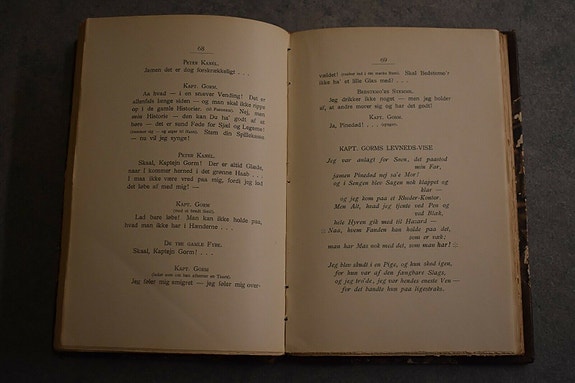 68
PETER KANEL.
Jamen det er dog forskrækkeligt . . .
KAPT. GORM.
Aa hvad — i en snæver Vending! Det er
allenfals længe siden — og man skal ikke rippe
op i de gamle Historier. Nej, men
som Historie — den kan Du ha' godt af at
høre — det er sund Føde for Sjæl og Legeme!
Stem din Spillekasse
— nu vil jeg synge!
PETER KANEL.
Skaal, Kaptejn Gorm! Der er altid Glæde,
naar I kommer herned i det grønne Haab . . .
I maa ikke være vred paa mig, fordi jeg lod
det løbe af med mig! —
KAPT. GORM
Lad bare løbe! Man kan ikke holde paa,
hvad man ikke har i Hænderne . . .
DE TRE GAMLE FYRE.
Skaal, Kaptejn Gorm! . . .
KAPT. GORM
Jeg føler mig emigret — jeg føler mig over-
69
vældet! Skal Bedstemo'r
ikke ha' et lille Glas med! . . .
BEDSTEMO'RS STEMME.
Jeg drikker ikke noget — men jeg holder
af, at andre morer sig og har det godt!
KAPT. GORM.
Ja, Pinedød! . . .
KAPT. GORMS LEVNEDS-VISE.
Jeg var anlagt for Søen, det paastod
min Far,
jamen Pinedød nej sa'e Mor!
og i Sengen blev Sagen nok klappet og
klar —
og jeg kom paa et Rheder-Kontor.
Men Alt, hvad jeg tjente ved Pen og
ved Blæk,
hele Hyren gik med til Hasard —
:: Naa, hvem Fanden kan holde paa det,
som er væk;
man har Møs nok med det, som man har! ::
Jeg blev skudt i en Pige, og hun skød igen,
for hun var af den fængbare Slags,
og jeg tro'de, jeg var hendes eneste Ven —
for det bandte hun paa ligestraks.